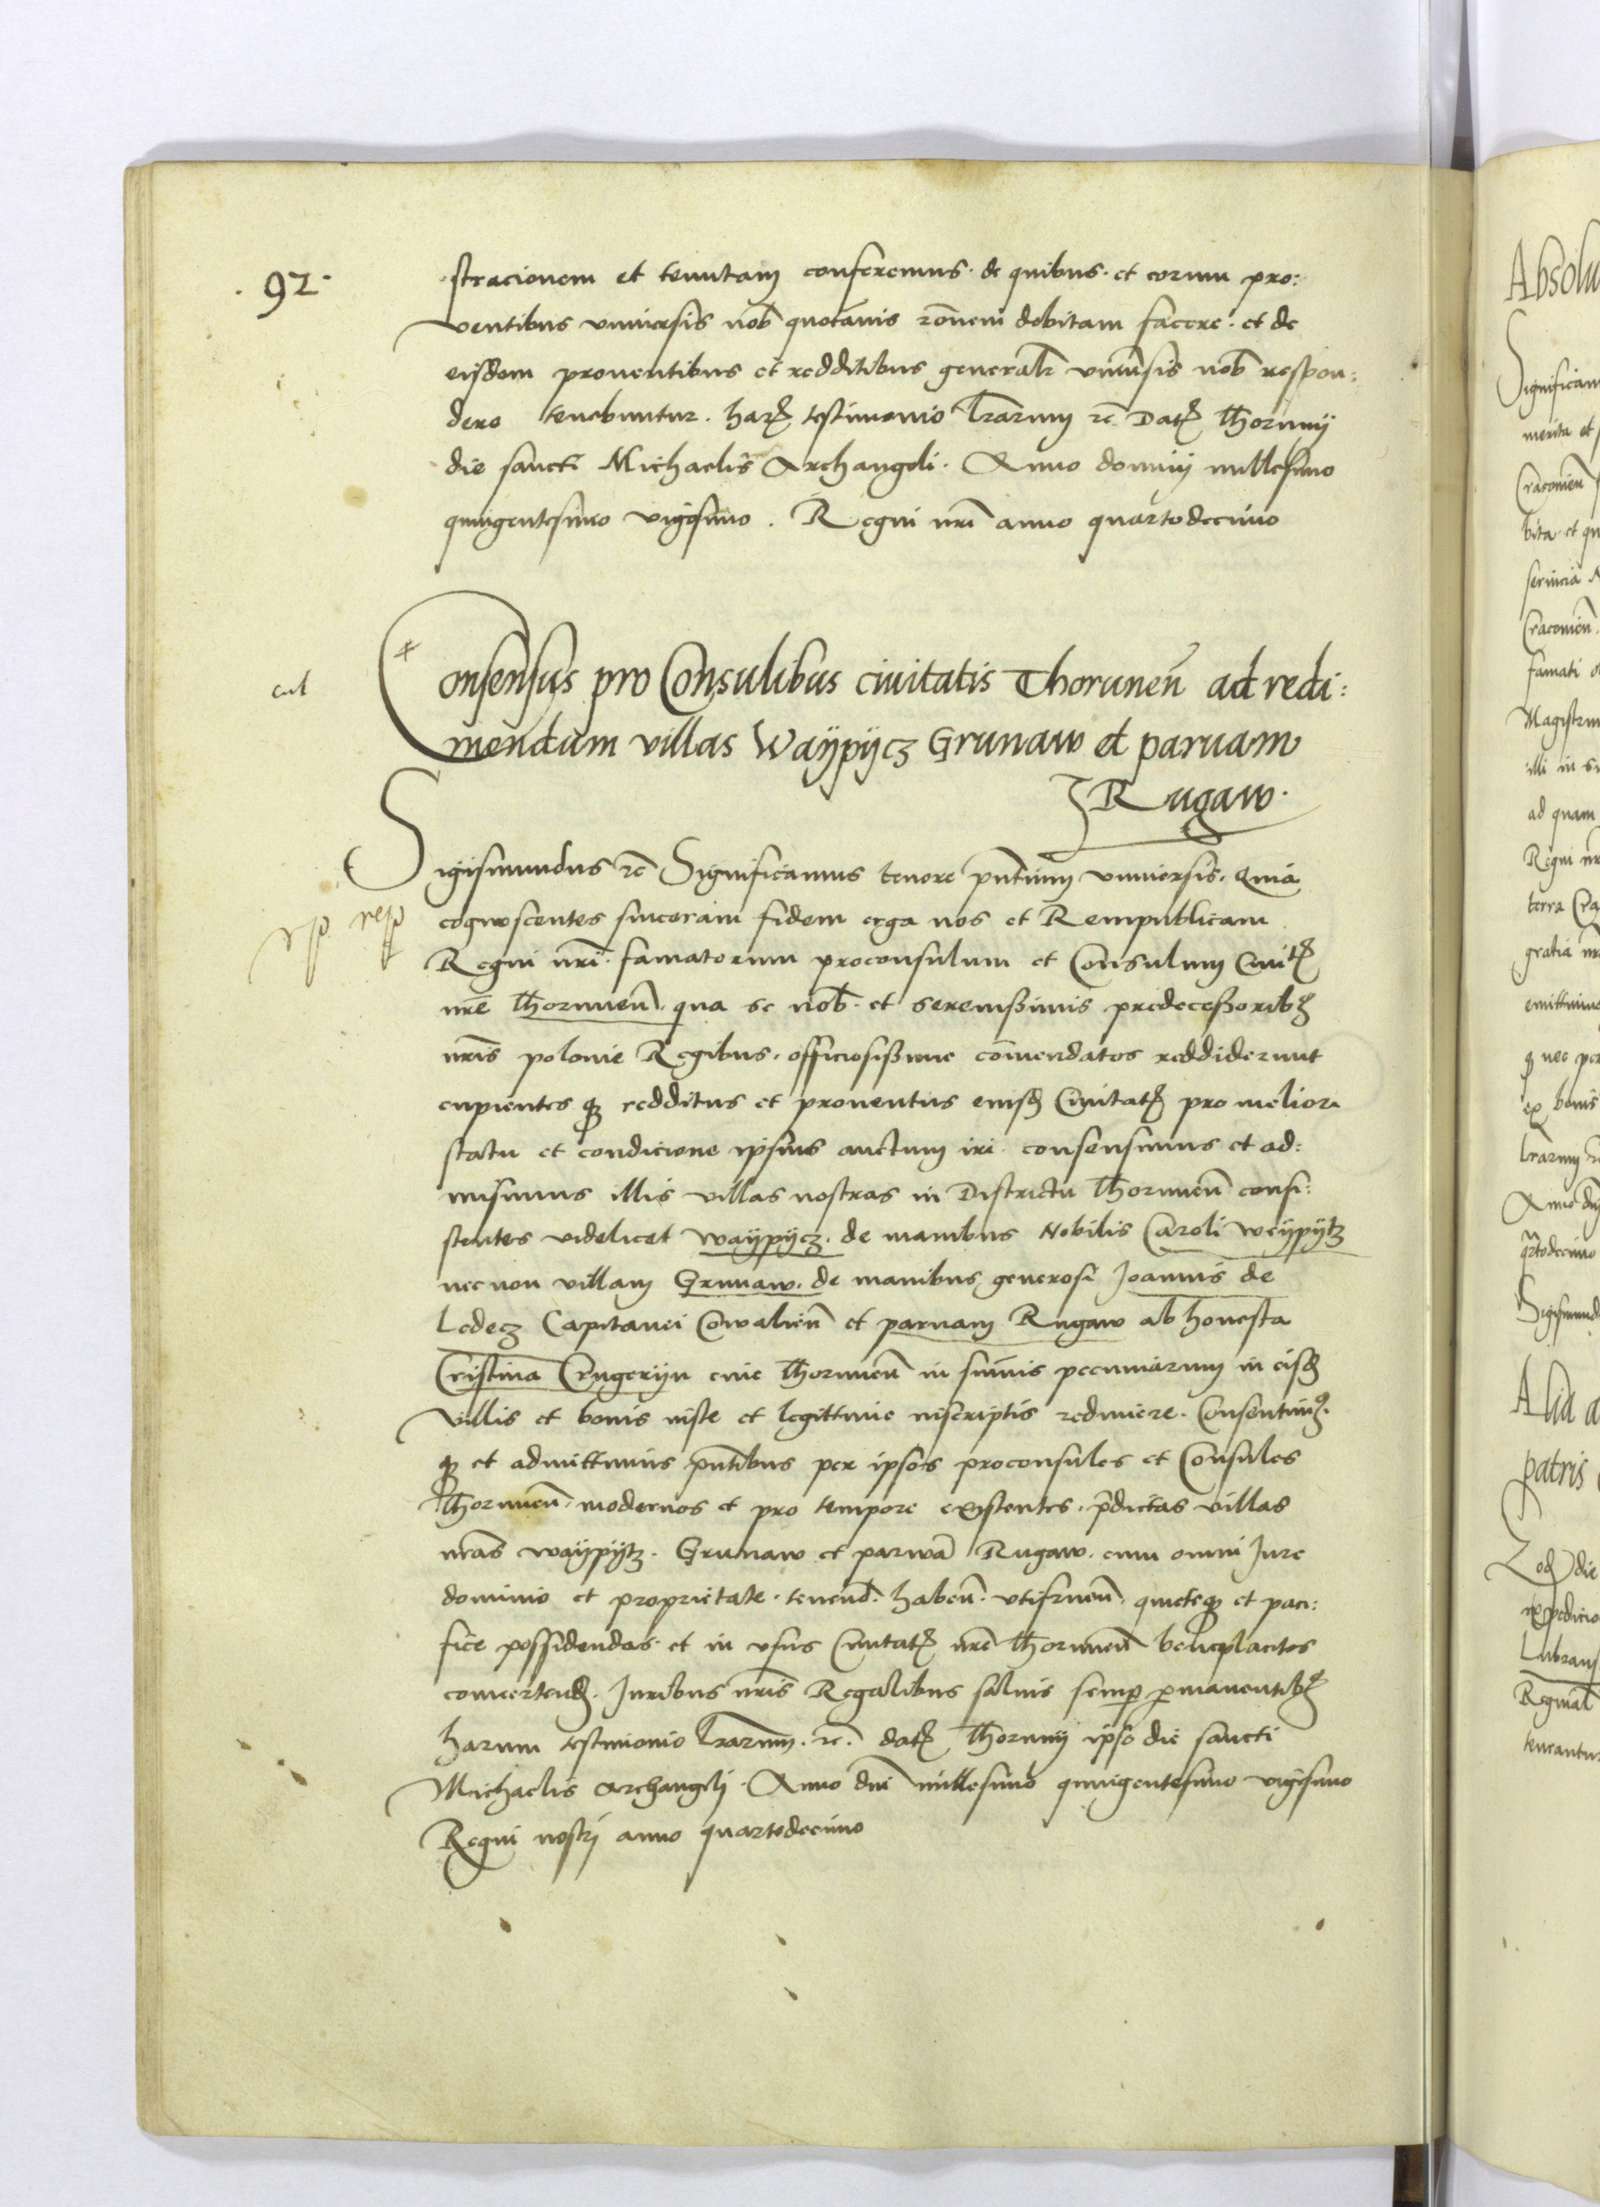 . 92 .
stracionem et tenutam conferemus . de quibus . et eorum pro:
ventibus vniuersis nob quotannis rōnem debitam facere . et de
eisdem prouentibus et redditibus generalr vniuersis nob respon:
dere tenebuntur . harꝫ testimonio lrārum ꝛc̄ Datꝫ Thorunij
die sancti Michaelis Archangeli . Anno domini millesimo
quingentesimo vigesimo . Regni nri anno quartodecimo
Consensus pro Consulibus ciuitatis Thorunen̄ ad redi:
mendum villas Waÿpÿcz Grunaw et paruam
Rugaw .
Sigismundus ꝛc̄ Significamus tenore pn̄tium vniuersis . Quia
rp resp cognoscentes sinceram fidem erga nos et Rempublicam
Regni nri . famatorum proconsulum et Consulum Ciuitꝫ
nrē Thorunen̄ . qua se nob . et serenissimis predecessoribꝫ
nris polonie Regibus . officiosissime cōmendatos reddiderunt
cupientes qꝫ redditus et prouentus eiusꝫ Ciuitatꝫ pro meliori
statu et condicione ipsius auctum iri . consensimus et ad:
misimus illis villas nostras in Districtu Thorunen̄ consi:
stentes videlicet waÿpÿcz . de manibus Nobilis Caroli weÿpÿtz
necnon villam Grunaw . de manibus generosi Joannis de
Ledecz Capitanei Cowalien̄ et paruam Rugaw ab honesta
Cristina Crugerÿn ciue Thorunen̄ in sum̄is pecuniarum in eisꝫ
villis et bonis iuste et legittime inscriptis redimere . Consentimꝰ .
qꝫ et admittimus pn̄tibus per ipsos proconsules et Consules
Thorunen̄ . modernos et pro tempore existentes . p̄dictas villas
nrās waÿpÿtz . Grunaw et paruā Rugaw . cum omni Jure
dominio et proprietate . tenend̄ . haben̄ . vtifruen̄ . quieteqꝫ et paci:
fice possidendas . et in vsus Ciuitatꝫ nrē Thorunen̄ beneplacitos
conuertendꝫ . Juribus nris Regalibus saluis semꝑ ꝑmanentibꝫ
harum testimonio lrārum . ꝛc̄ . datꝫ Thorunij ipso die sancti
Michaelis Archangeli . Anno dnī millesimo quingentesimo vigesimo
Regni nostri anno quartodecimo